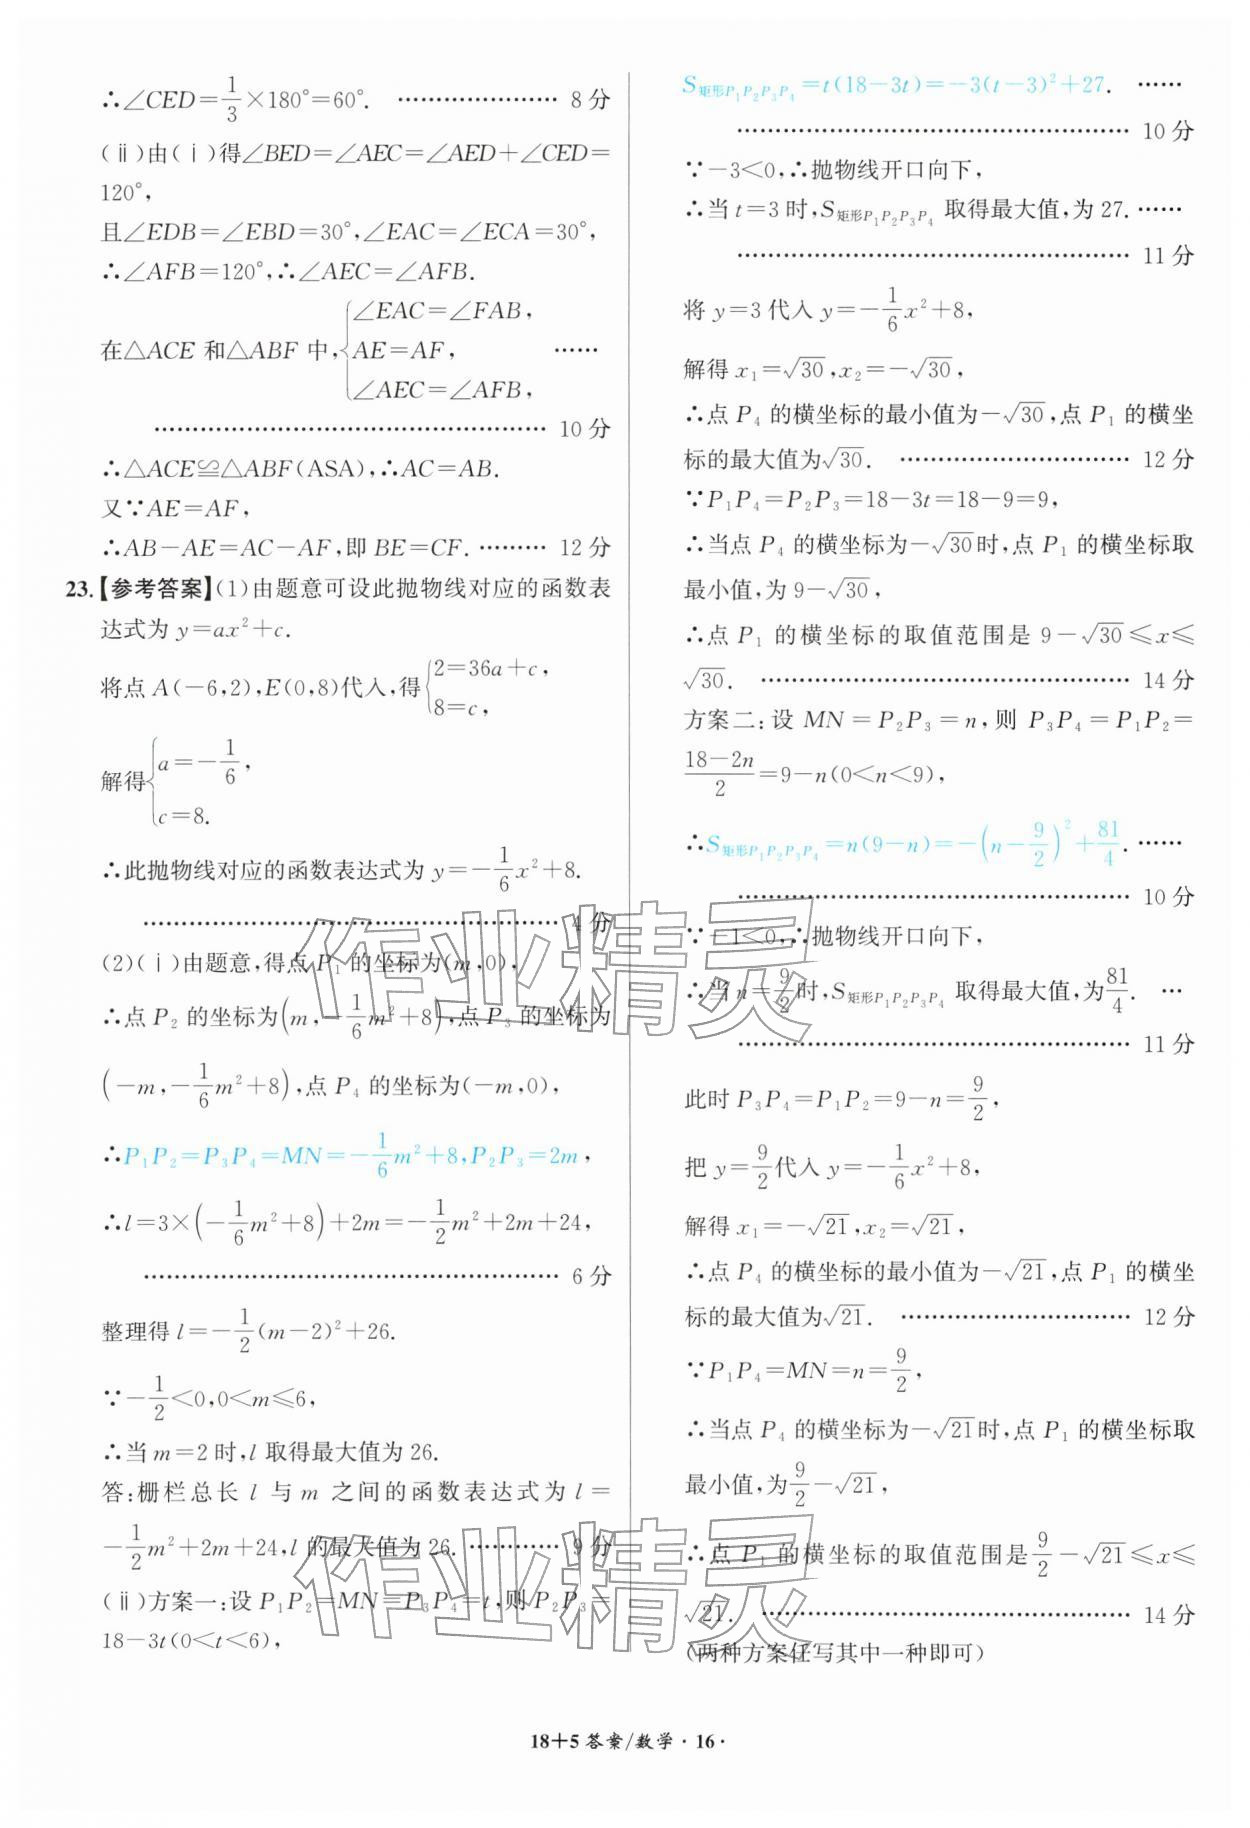 ∴∠CED=1/3×180°=60°. …………………… 8 分
(ⅱ)由(ⅰ)得∠BED=∠AEC=∠AED+∠CED=
120°,
且∠EDB=∠EBD=30°,∠EAC=∠ECA=30°,
∴∠AFB=120°,∴∠AEC=∠AFB.
在△ACE 和△ABF 中,{∠EAC=∠FAB, AE=AF, ∠AEC=∠AFB, ……
…………………………………………… 10 分
∴△ACE≌△ABF(ASA),∴AC=AB.
又∵AE=AF,
∴AB-AE=AC-AF,即 BE=CF. ……… 12 分
23.【参考答案】(1)由题意可设此抛物线对应的函数表
达式为 y=ax²+c.
将点 A(-6,2),E(0,8)代入,得{2=36a+c, 8=c,
解得{a=-1/6, c=8.
∴此抛物线对应的函数表达式为 y=-1/6x²+8.
……………………………………………… 4 分
(2)(ⅰ)由题意,得点 P₁ 的坐标为(m,0),
∴点 P₂ 的坐标为(m,-1/6m²+8),点 P₃ 的坐标为
(-m,-1/6m²+8),点 P₄ 的坐标为(-m,0),
∴P₁P₂=P₃P₄=MN=-1/6m²+8,P₂P₃=2m,
∴l=3×(-1/6m²+8)+2m=-1/2m²+2m+24,
……………………………………………… 6 分
整理得 l=-1/2(m-2)²+26.
∵-1/2<0,0<m≤6,
∴当 m=2 时,l 取得最大值为 26.
答:栅栏总长 l 与 m 之间的函数表达式为 l=
-1/2m²+2m+24,l 的最大值为 26. ………… 9 分
(ⅱ)方案一:设 P₁P₂=MN=P₃P₄=t,则 P₂P₃=
18-3t(0<t<6),
S矩形P₁P₂P₃P₄=t(18-3t)=-3(t-3)²+27. ……
…………………………………………… 10 分
∵-3<0,∴抛物线开口向下,
∴当 t=3 时,S矩形P₁P₂P₃P₄ 取得最大值,为 27. ……
…………………………………………… 11 分
将 y=3 代入 y=-1/6x²+8,
解得 x₁=√30,x₂=-√30,
∴点 P₄ 的横坐标的最小值为-√30,点 P₁ 的横坐
标的最大值为√30. ………………………… 12 分
∵P₁P₄=P₂P₃=18-3t=18-9=9,
∴当点 P₄ 的横坐标为-√30时,点 P₁ 的横坐标取
最小值,为 9-√30,
∴点 P₁ 的横坐标的取值范围是 9-√30≤x≤
√30. ………………………………………… 14 分
方案二:设 MN=P₂P₃=n,则 P₃P₄=P₁P₂=
(18-2n)/2=9-n(0<n<9),
∴S矩形P₁P₂P₃P₄=n(9-n)=-(n-9/2)²+81/4. ……
…………………………………………… 10 分
∵-1<0,∴抛物线开口向下,
∴当 n=9/2时,S矩形P₁P₂P₃P₄ 取得最大值,为81/4. …
…………………………………………… 11 分
此时 P₃P₄=P₁P₂=9-n=9/2,
把 y=9/2代入 y=-1/6x²+8,
解得 x₁=-√21,x₂=√21,
∴点 P₄ 的横坐标的最小值为-√21,点 P₁ 的横坐
标的最大值为√21. ………………………… 12 分
∵P₁P₄=MN=n=9/2,
∴当点 P₄ 的横坐标为-√21时,点 P₁ 的横坐标取
最小值,为9/2-√21,
∴点 P₁ 的横坐标的取值范围是9/2-√21≤x≤
√21. ………………………………………… 14 分
(两种方案任写其中一种即可)
作业精灵
作业精灵
18+5 答案/数学·16·